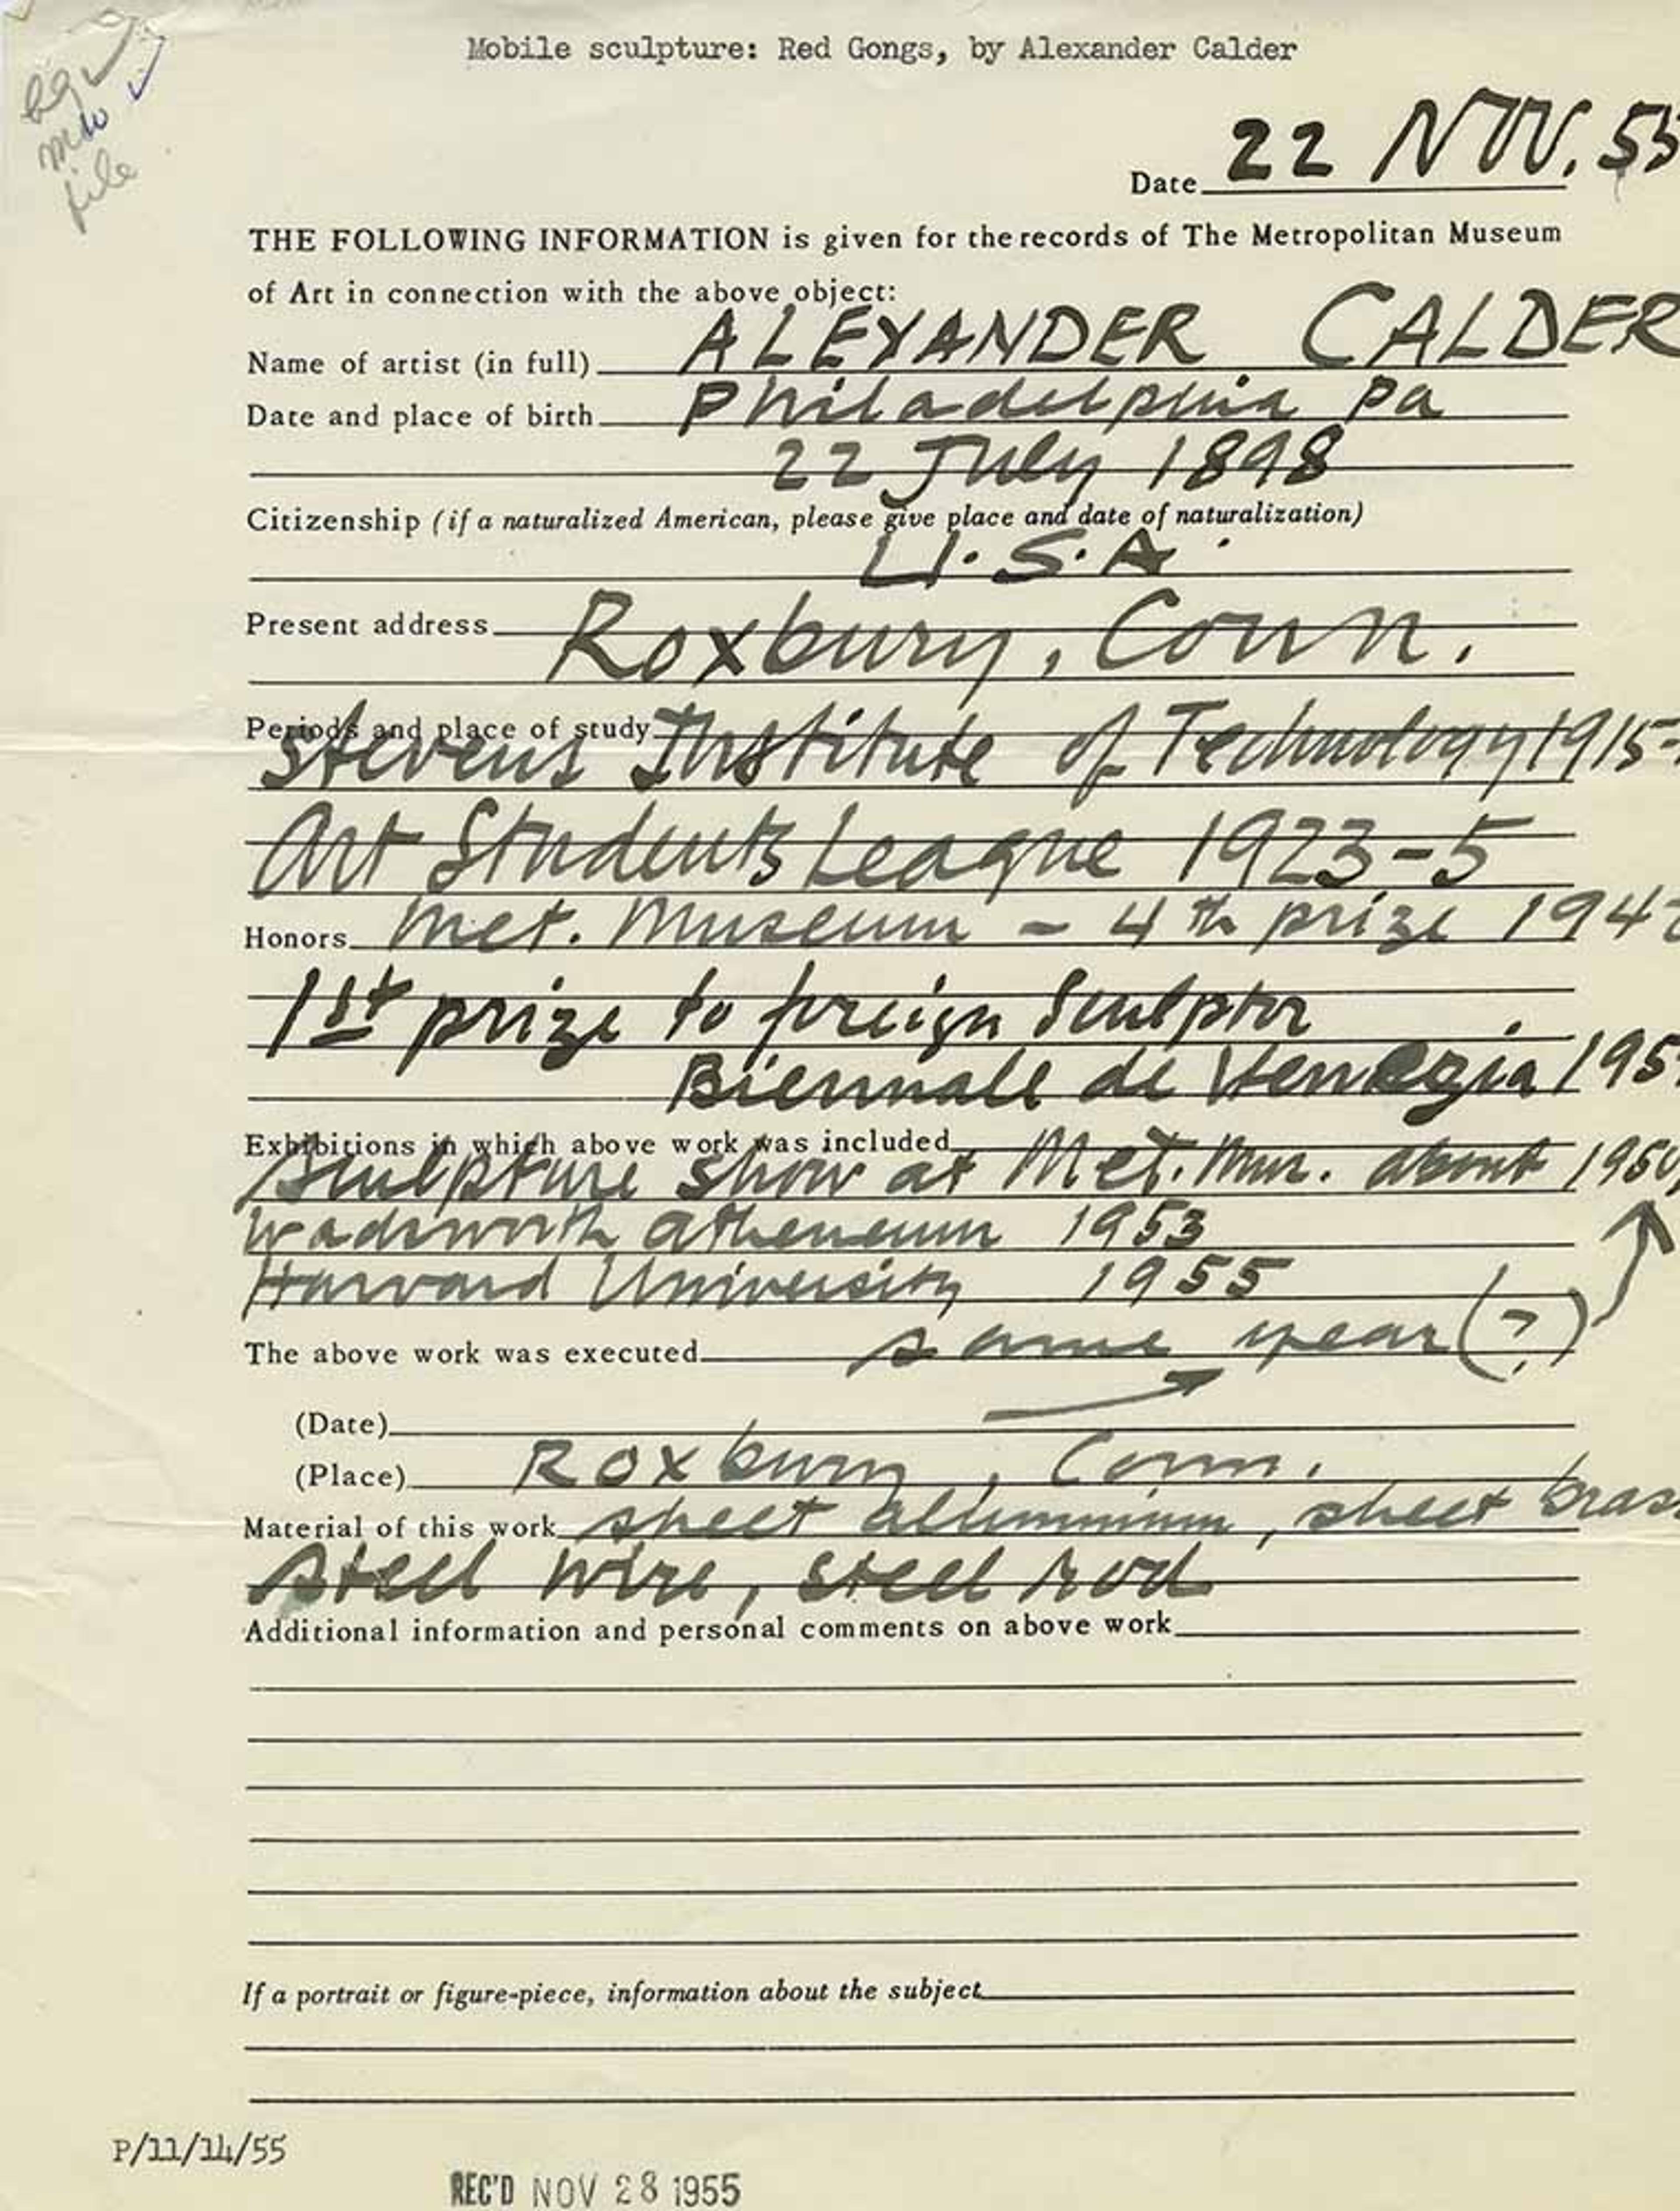 Mobile sculpture: Red Gongs, by Alexander Calder
file
Date 22 NOV. 55
THE FOLLOWING INFORMATION is given for the records of The Metropolitan Museum
of Art in connection with the above object:
Name of artist (in full) ALEXANDER CALDER
Date and place of birth Philadelphia Pa
22 July 1898
Citizenship (if a naturalized American, please give place and date of naturalization)
U.S.A.
Present address Roxbury, Conn.
Periods and place of study
Stevens Institute of Technology 1915-
Art Students League 1923-5
Honors Met. Museum - 4th prize
1st prize to foreign Sculptor
Biennale de Venezia
Exhibitions in which above work was included
Sculpture show at Met. Mus. about 1950,
Wadsworth Atheneum 1953
Harvard University 1955
The above work was executed same year (?)
(Date)
(Place) Roxbury, Conn.
Material of this work sheet alluminium, sheet brass
steel wire, steel rod
Additional information and personal comments on above work
If a portrait or figure-piece, information about the subject
P/11/14/55
REC'D NOV 28 1955